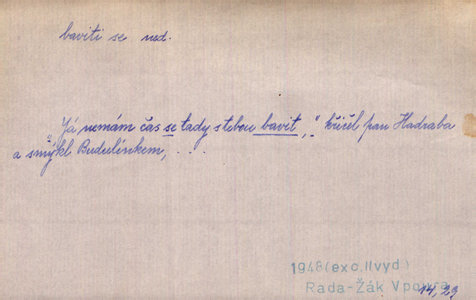 baviti se ned.
„Já nemám čas se tady s tebou bavit," křičel pan Hadraba
a smýkl Budulínkem, . . .
1948 (exc. II vyd)
Rada-Žák Vpoura
14, 23